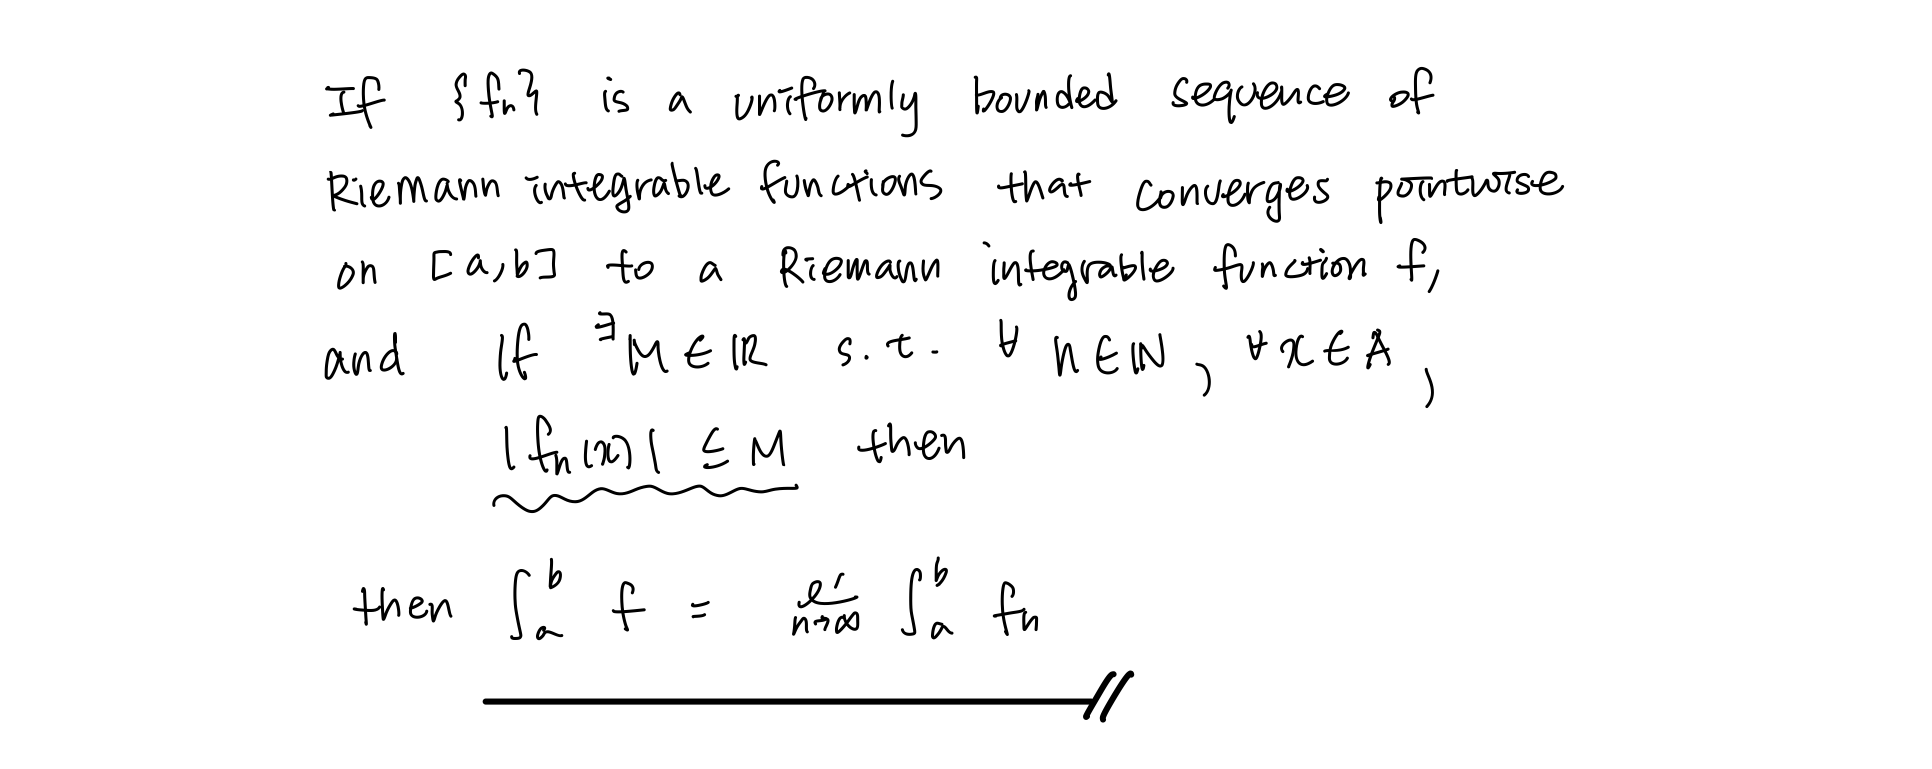 If {fn} is a uniformly bounded sequence of
Riemann integrable functions that converges pointwise
on [a,b] to a Riemann integrable function f,
and if ∃M∈ℝ s.t. ∀ n∈ℕ, ∀x∈A,
|fn(x)| ≤ M then
then ∫_a^b f = lim_{n→∞} ∫_a^b fn